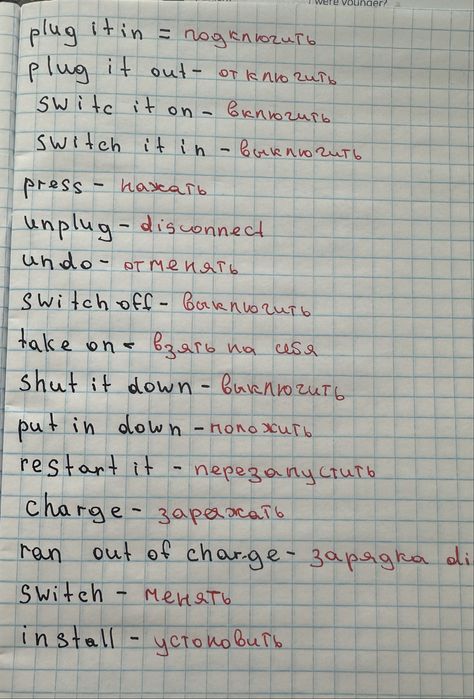 I were younger?
plug it in = подключить
plug it out - отключить
switc it on - включить
switch it in - выключить
press - нажать
unplug - disconnect
undo - отменять
switch off - выключить
take on - взять на себя
shut it down - выключить
put in down - положить
restart it - перезапустить
charge - заряжать
ran out of charge - зарядка di
switch - менять
install - устоковить